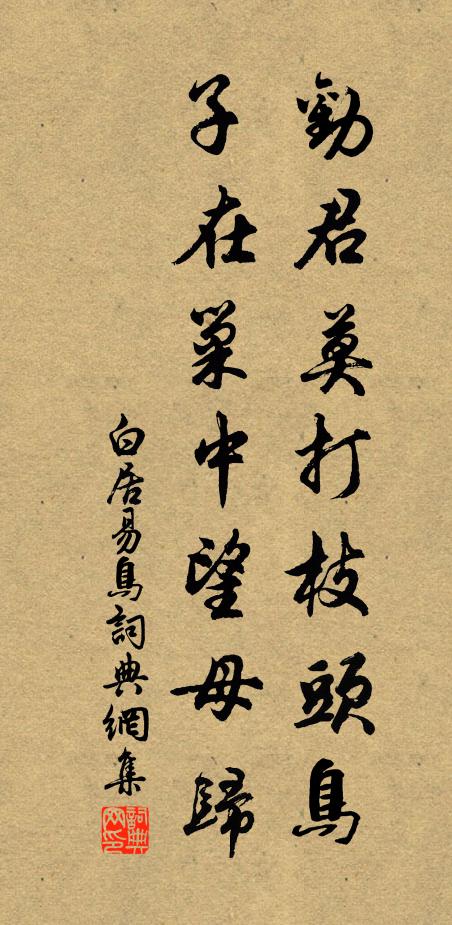 勸君莫打枝頭鳥
子在巢中望母歸
白居易鳥詞典網集
詞典網印